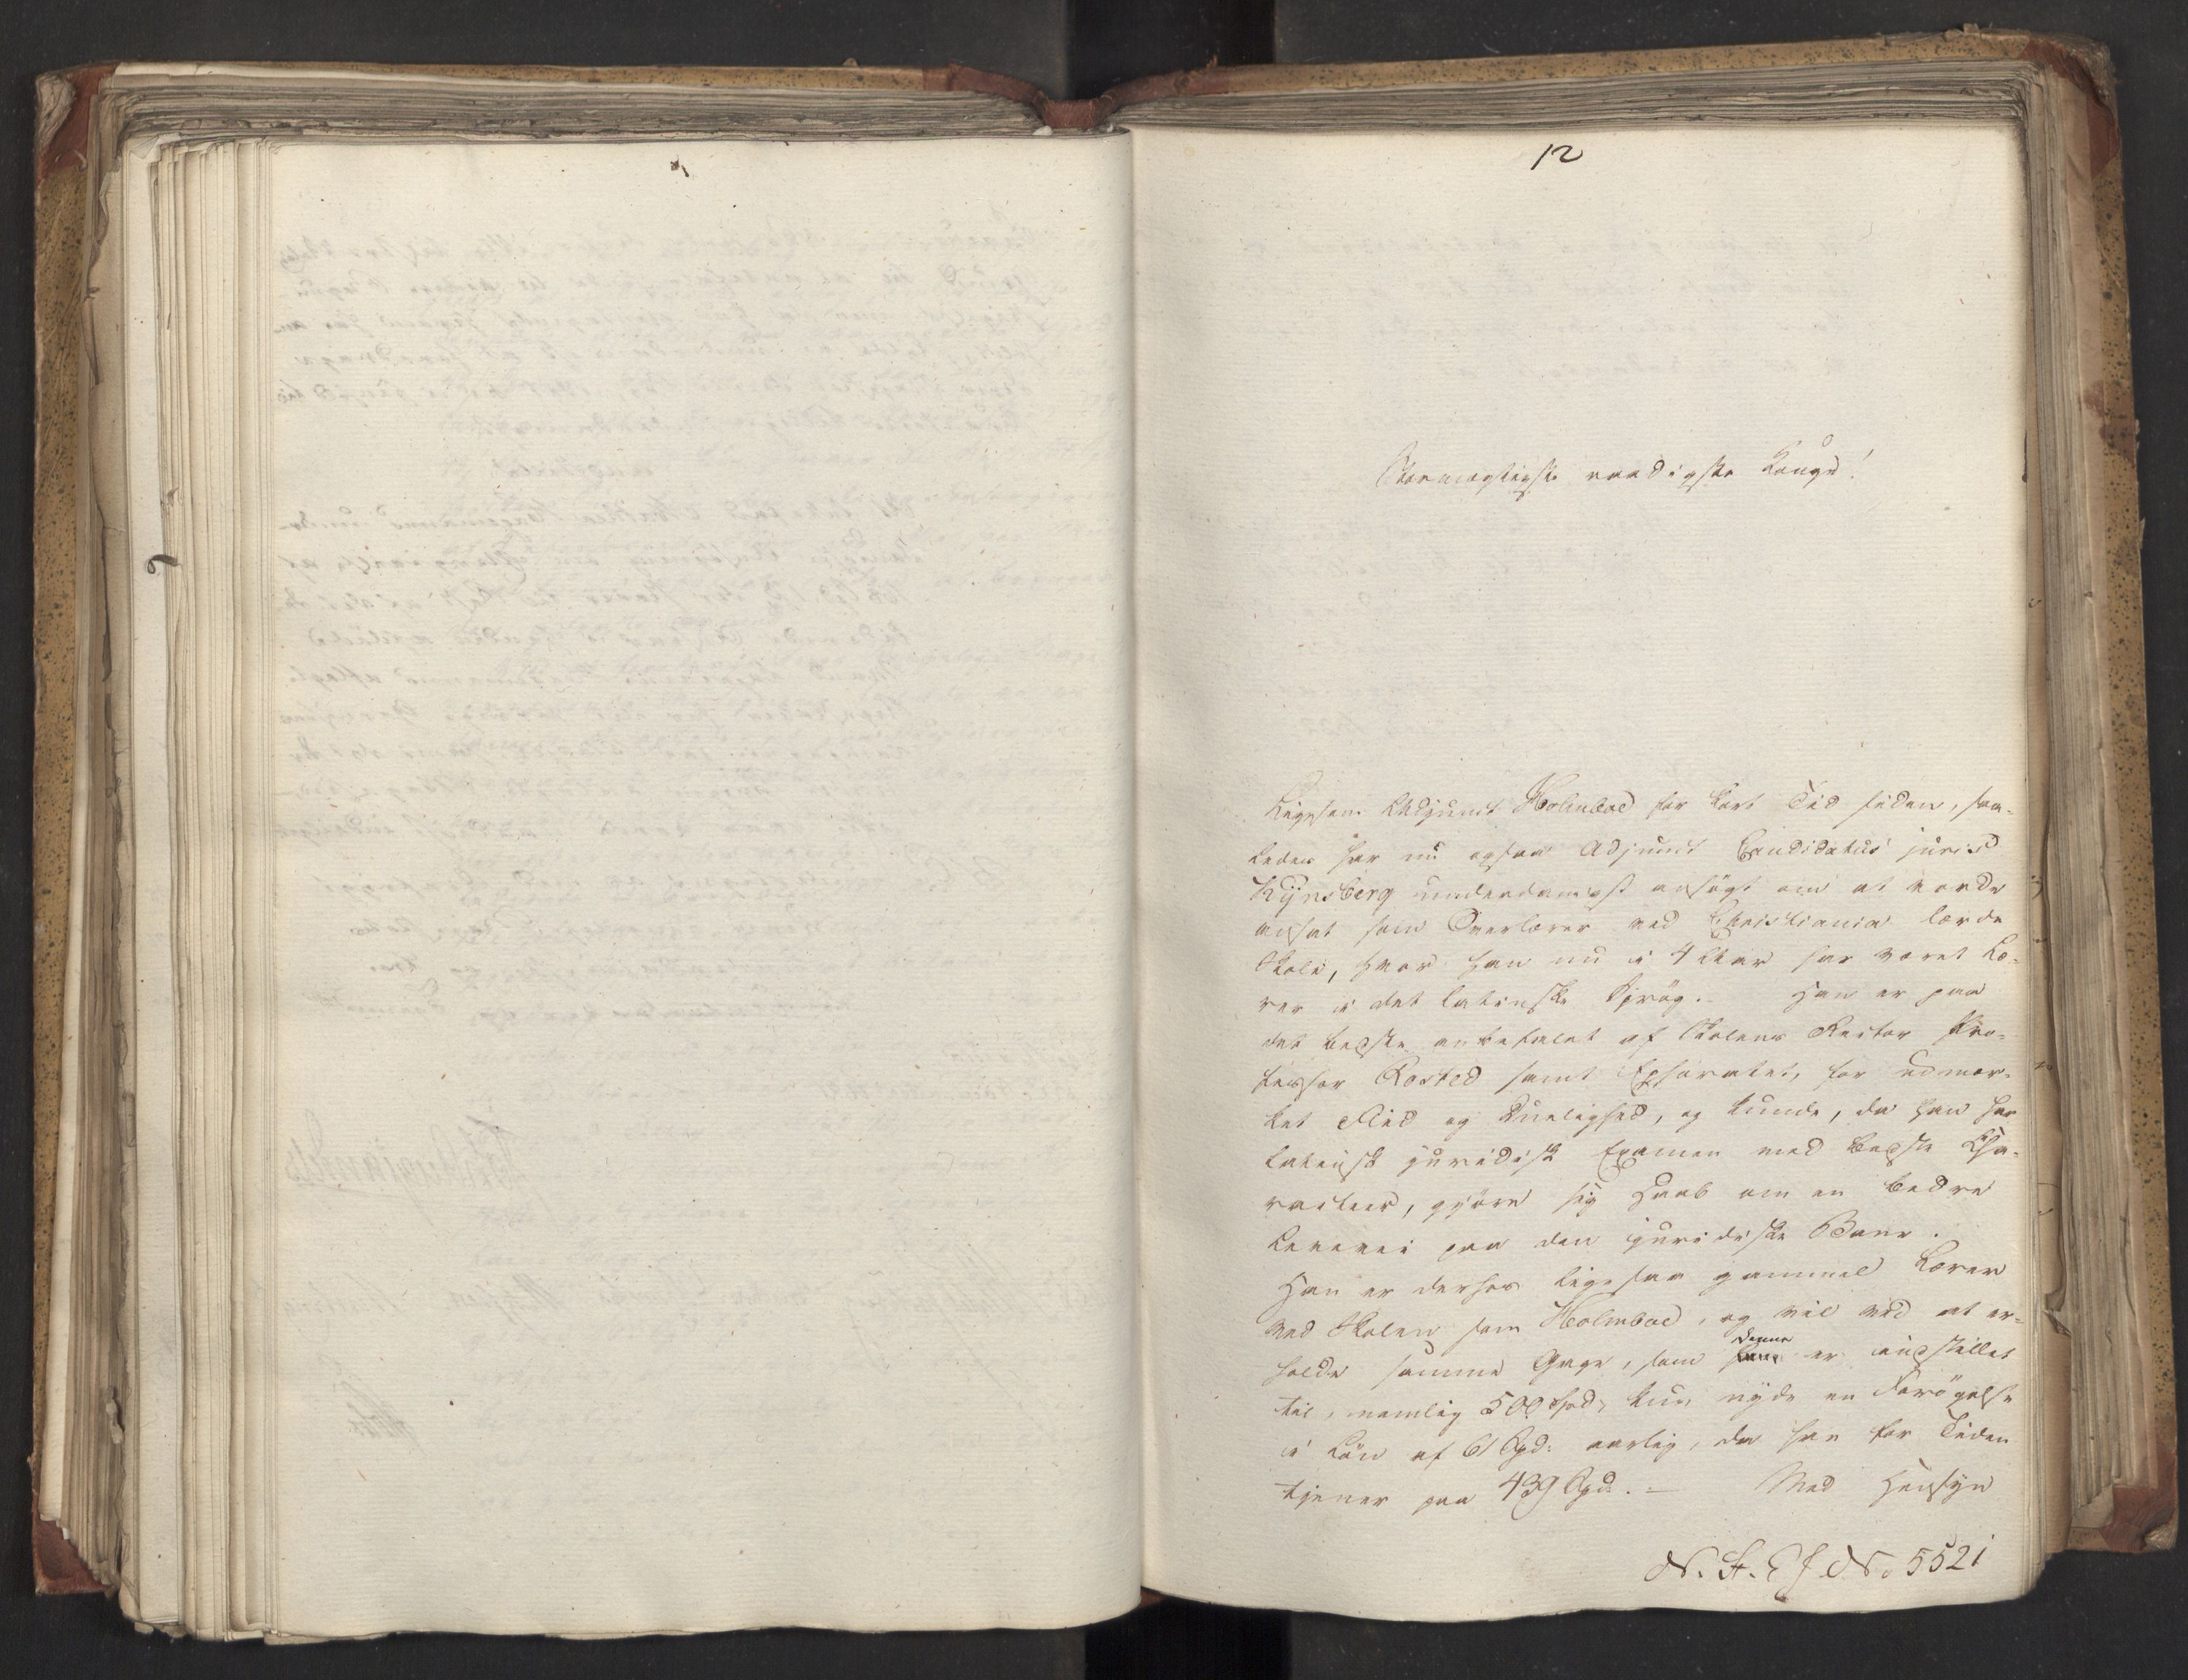 12
Stormægtigste naadigste Konge!
Ligesom Adjunct Holmboe for kort Tid siden, saa-
ledes har nu ogsaa Adjunct Candidatus juris
Rynsberg underdanigst ansögt om at vorde
ansat som Overlærer ved Christiania lærde
Skole, hvor han nu i 4 Aar har været Læ-
rer i det latinske Sprog. Han er paa
det bedste anbefalet af Skolens Rector Pro-
fessor Rosted samt Ephoratet, for udmær-
ket Flid og Duelighed, og kunde, da han har
latinsk juridisk Examen med bedste Cha-
racteer, gjöre sig Haab om en bedre
Levevei paa den juridiske Bane.
Han er derhos ligesaa gammel Lærer
ved Skolen som Holmboe, og vil ved at er-
holde samme Gage, som denne er indstillet
til, nemlig 500 Spd, kun nyde en Forögelse
i Lön af 61 Spd: aarlig, da han for Tiden
tjener paa 439 Spd. — Med Hensyn
No 5521